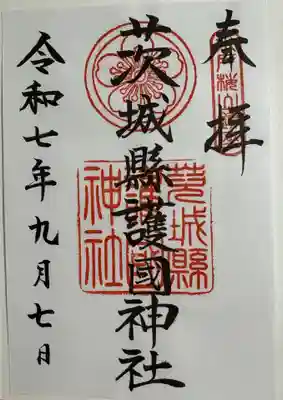 奉拝
茨城縣護國神社
茨城縣
護國
神社
令和七年九月七日